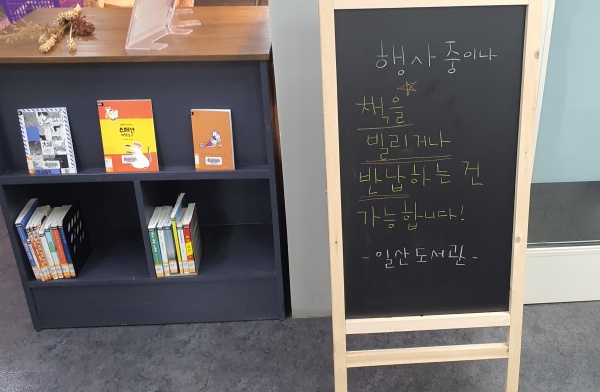 행사 중이나
책을
빌리거나
반납하는 건
가능합니다!
- 일산도서관 -